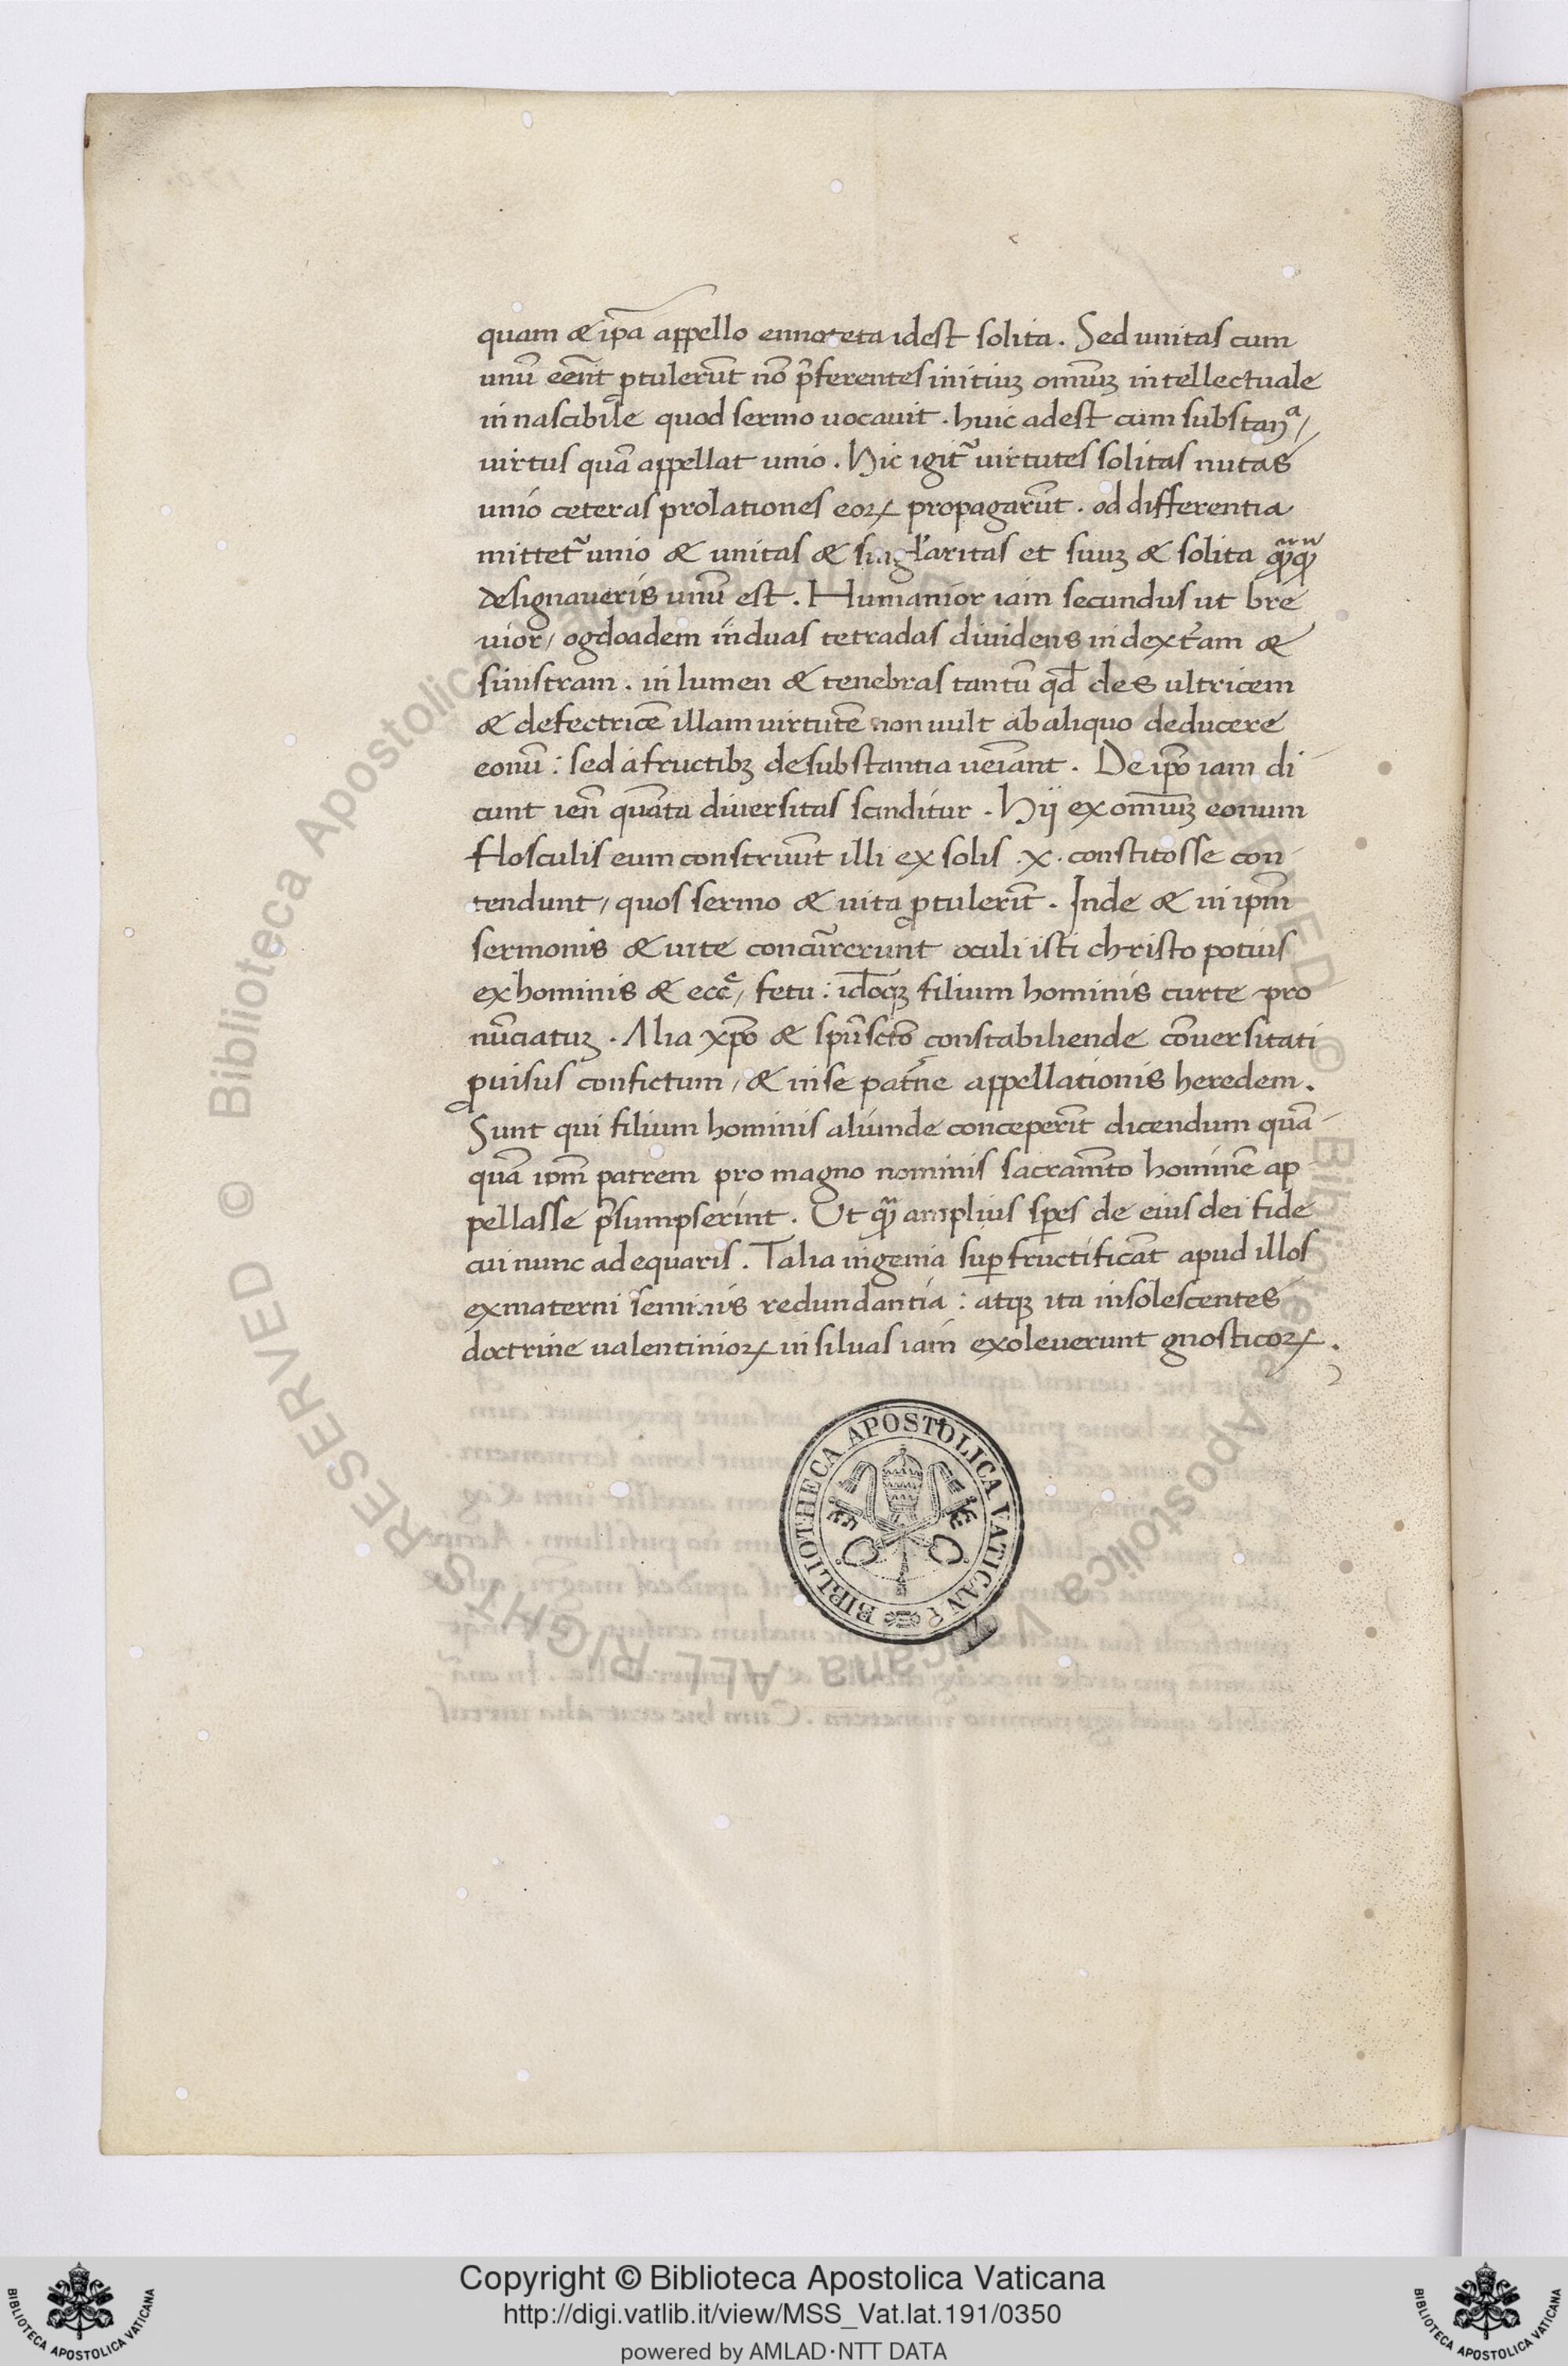 quam & ip̃a appello ennoteta idest solita. Sed unitas cum
unũ eẽnt ꝓtulerũt nõ p̃ferentes initiuꝫ omniũꝫ intellectuale
innascibile quod sermo uocauit. huic adest cum substanᵃ/
uirtus quã appellat unio. Hic igit̃ uirtutes solitas nutas
unio ceteras prolationes eoꝝ propagarũt. od differentia
mittet̃ unio & unitas & singl̃aritas et suuꝫ & solita
delignaueris unũ est. Humanior iam secundus ut bre
uior/ ogdoadem induas tetradas diuidens in dext̃am &
sinistram. in lumen & tenebras tantũ qđ des ultricem
& defectricẽ illam uirtutẽ non uult ab aliquo deducere
eonũ: sed a fructibꝫ de substantia ueiãnt. De ip̃o iam di
cunt ien̄ quãta diuersitas scinditur. Hij ex omniũꝫ eonum
flosculis eum construũt illi ex solis .x. constitosse con
tendunt/ quos sermo & uita ꝓtulerit̃. Inde & in ip̃m
sermonis & uite concur̃rerunt oculi isti christo potius
ex hominis & ecc̃e/ fetu: id̃oqꝫ filium hominis curte pro
nũciatuꝫ. Alia xp̃o & sp̃us̃cto constabiliende cõuersitati
ꝓuisus confictum/ & in se pat̃ne appellationis heredem.
Sunt qui filium hominis aliunde conceperĩt dicendum quã
quã ip̃m patrem pro magno nominis sacramẽto hominẽ ap
pellasse p̃sumpserint. Ut qm̃ amplius sp̃es de eius dei fide
cui nunc adequaris. Talia ingenia suꝑfructificãt apud illos
ex materni seminis redundantia: atqꝫ ita insolescentes
doctrine ualentinioꝝ in siluas iam exoleuerunt gnosticoꝝ.
BIBLIOTHECA APOSTOLICA VATICANA
© Biblioteca Apostolica Vaticana ALL RIGHTS RESERVED
Copyright © Biblioteca Apostolica Vaticana
http://digi.vatlib.it/view/MSS_Vat.lat.191/0350
powered by AMLAD·NTT DATA
BIBLIOTECA APOSTOLICA VATICANA
BIBLIOTECA APOSTOLICA VATICANA